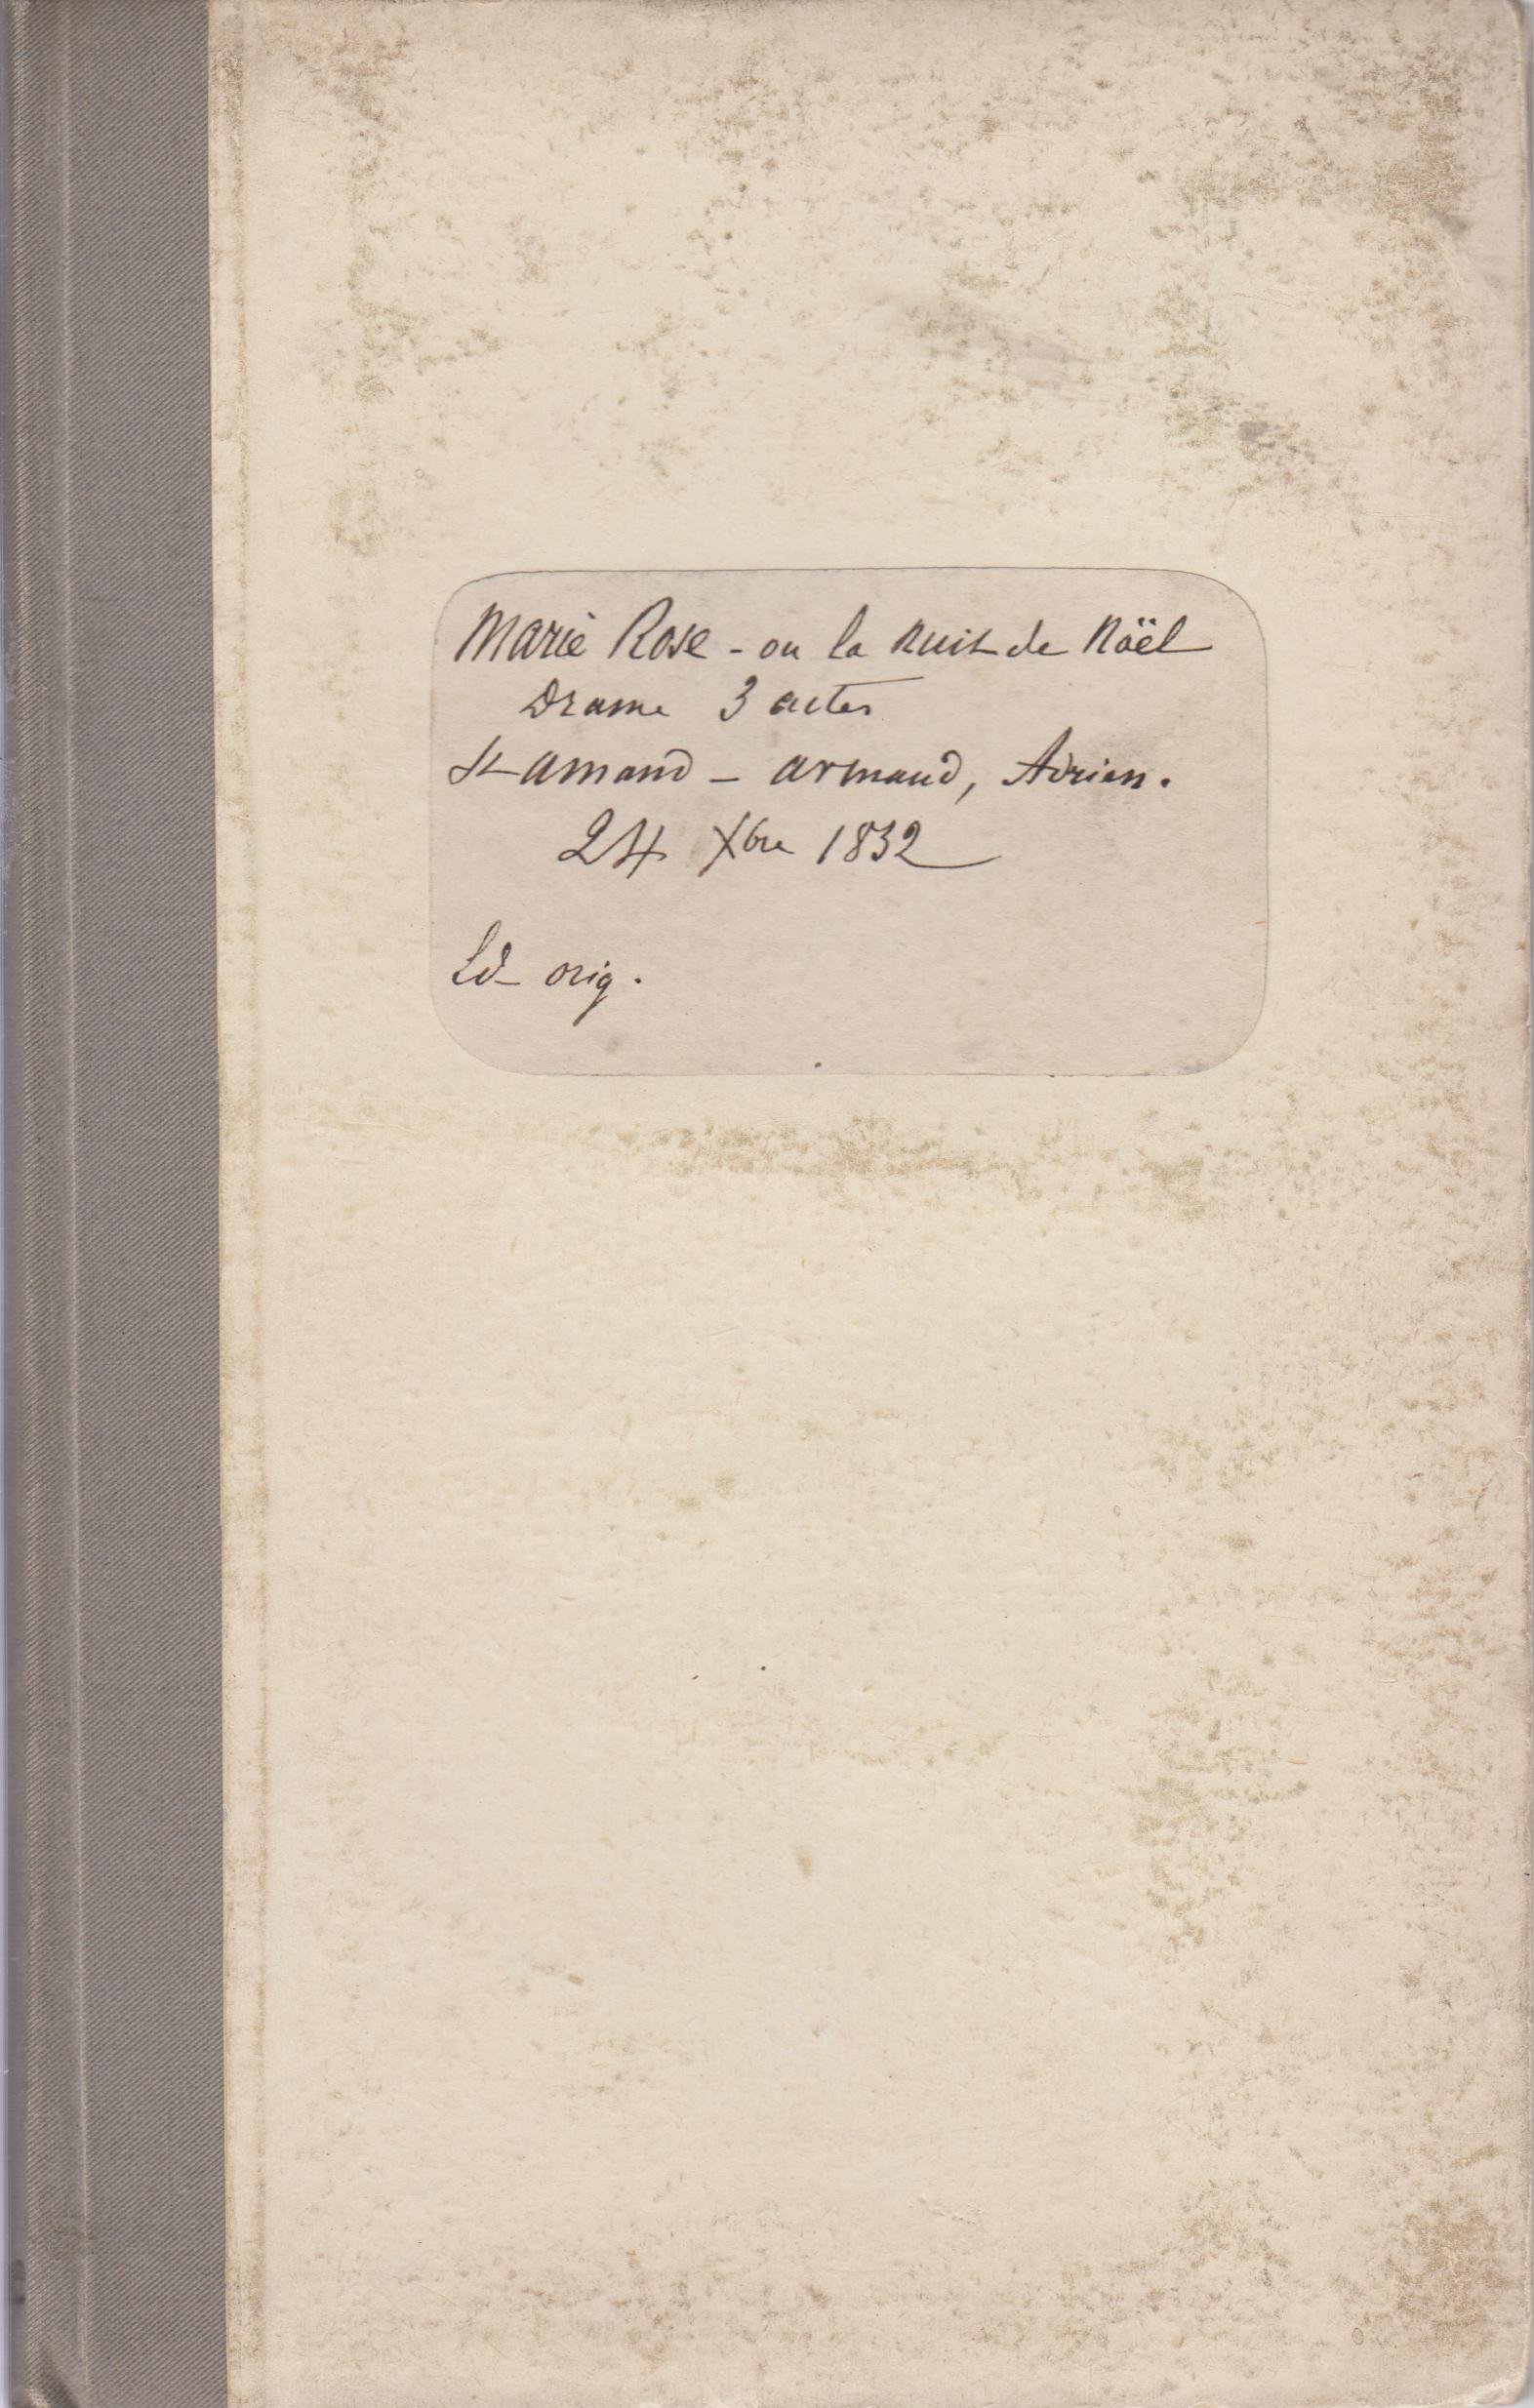 Marie Rose - ou la nuit de Noël
Drame 3 actes
St amand - armand, Adrien.
24 Xbre 1832
Ed- orig.